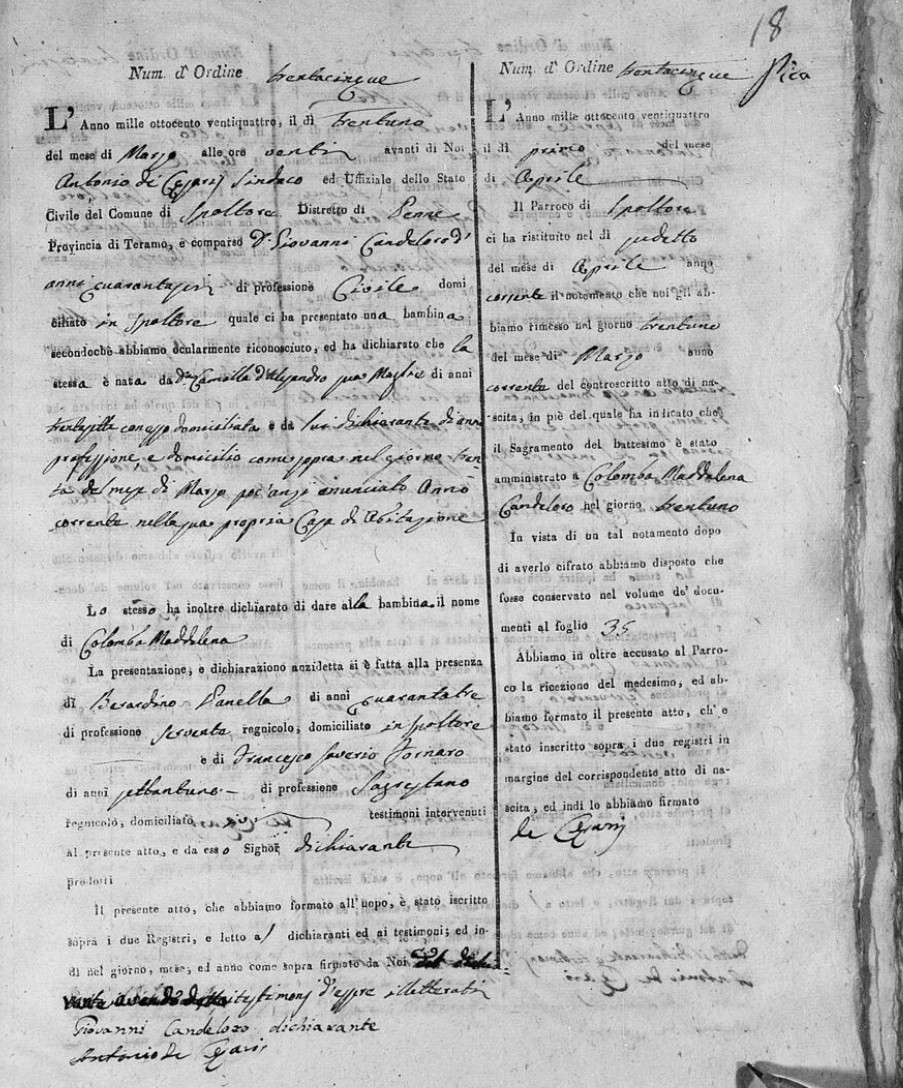 18
Num. d' Ordine trentacinque
L' Anno mille ottocento ventiquattro, il dì trentuno
del mese di Marzo alle ore venti avanti di Noi
Antonio di Cesaris Sindaco ed Uffiziale dello Stato
Civile del Comune di Spoltore Distretto di Penne
Provincia di Teramo, è comparso D. Giovanni Candeloro d'
anni quarantasei di professione Civile domi
ciliato in Spoltore quale ci ha presentato una bambina
secondochè abbiamo ocularmente riconosciuto, ed ha dichiarato che la
stessa è nata da D.a Camilla d'Alesandro sua Moglie di anni
trentasette con esso domiciliata e da lui dichiarante di anni
professione, e domicilio come sopra nel giorno tren
ta del mese di Marzo poc'anzi anunciato Anno
corrente nella sua propria Casa di Abitazione
Lo stesso ha inoltre dichiarato di dare alla bambina il nome
di Colomba Maddalena
La presentazione, e dichiarazione anzidetta si è fatta alla presenza
di Berardino Panella di anni quarantatre
di professione Servente regnicolo, domiciliato in Spoltore
e di Francesco Saverio Fornaro
di anni settantuno di professione Sagrestano
regnicolo, domiciliato ivi testimoni intervenuti
al presente atto, e da esso Signor dichiarante
prodotti
Il presente atto, che abbiamo formato all'uopo, è stato iscritto
sopra i due Registri, e letto al dichiaranti ed ai testimoni; ed in-
di nel giorno, mese, ed anno come sopra firmato da Noi
i testimonj d'essere illetterati
Giovanni Candeloro dichiarante
Antonio de Cesaris
Num. d' Ordine trentacinque Pica
L' Anno mille ottocento ventiquattro
il dì primo del mese
di Aprile
Il Parroco di Spoltore
ci ha ristituito nel dì sudetto
del mese di Aprile anno
corrente il notamento che noi gli ab-
biamo rimesso nel giorno trentuno
del mese di Marzo anno
corrente del controscritto atto di na-
scita, in piè del quale ha indicato che
il Sagramento del battesimo è stato
amministrato a Colomba Maddalena
Candeloro nel giorno trentuno
In vista di un tal notamento dopo
di averlo cifrato abbiamo disposto che
fosse conservato nel volume de' docu-
menti al foglio 35
Abbiamo in oltre accusato al Parro-
co la ricezione del medesimo, ed ab-
biamo formato il presente atto, ch' è
stato inscritto sopra i due registri in
margine del corrispondente atto di na-
scita, ed indi lo abbiamo firmato
de Cesaris